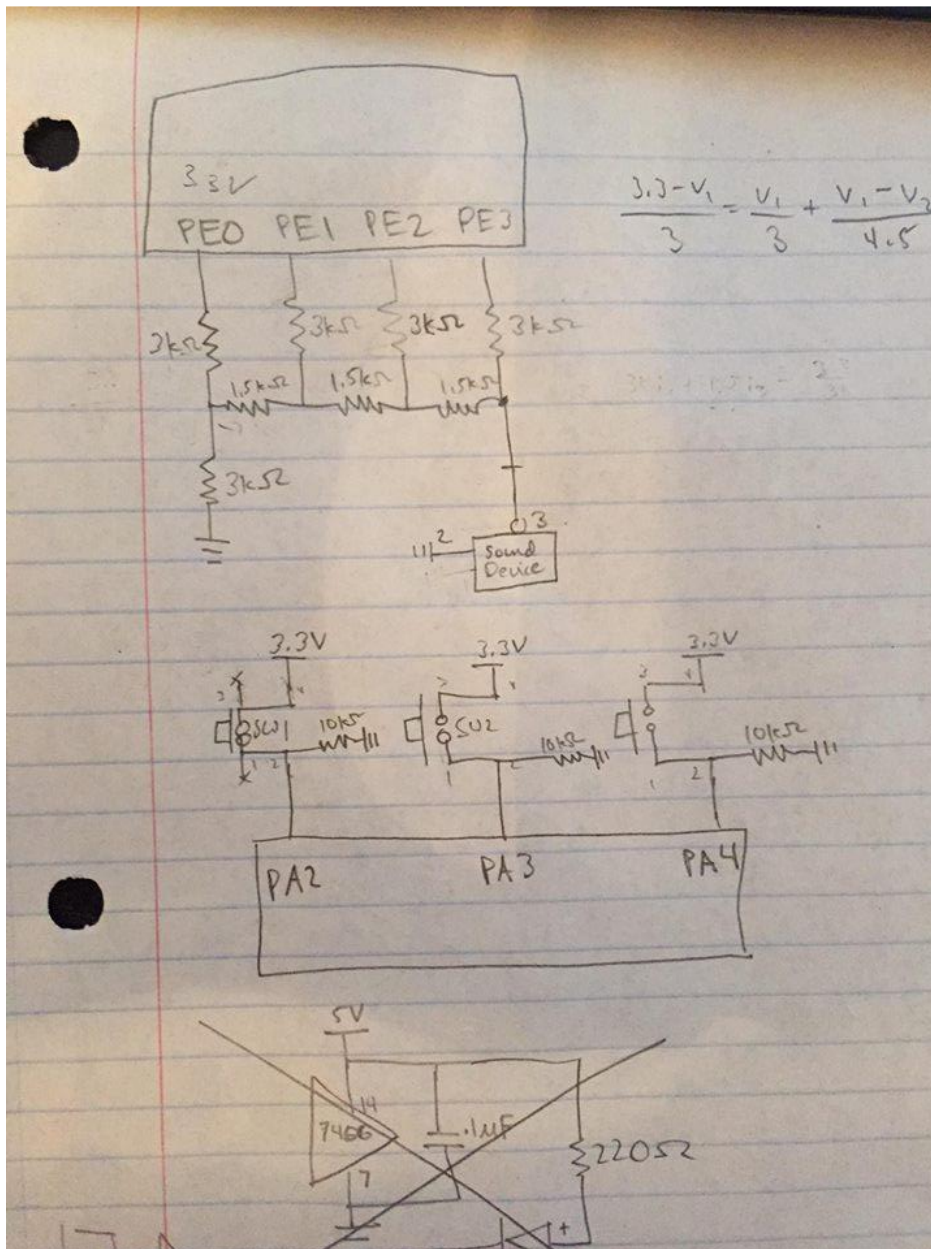 3.3V
PE0 PE1 PE2 PE3
3.3-V₁/3 = V₁/3 + V₁-V₂/4.5
3kΩ 3kΩ 3kΩ 3kΩ
1.5kΩ 1.5kΩ 1.5kΩ
3kΩ
3
2
Sound
Device
3.3V 3.3V 3.3V
3 4 3 4 3 4
SW1 10kΩ SW2 10kΩ 10kΩ
1 2 1 2 1 2
PA2 PA3 PA4
5V
14
7406 .1μF
220Ω
7
+